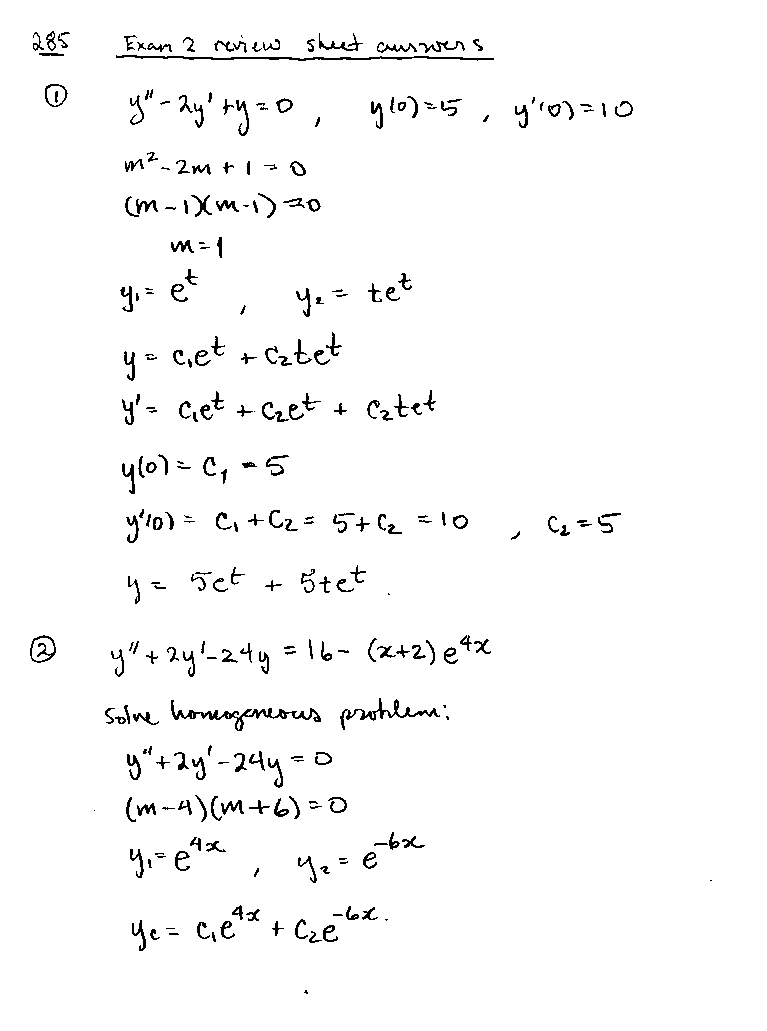 285 Exam 2 review sheet answers
① y'' - 2y' + y = 0 , y(0) = 5 , y'(0) = 10
m² - 2m + 1 = 0
(m - 1)(m - 1) = 0
m = 1
y₁ = eᵗ , y₂ = teᵗ
y = c₁eᵗ + c₂teᵗ
y' = c₁eᵗ + c₂eᵗ + c₂teᵗ
y(0) = c₁ = 5
y'(0) = c₁ + c₂ = 5 + c₂ = 10 , c₂ = 5
y = 5eᵗ + 5teᵗ.
② y'' + 2y' - 24y = 16 - (x+2) e⁴ˣ
Solve homogeneous problem:
y'' + 2y' - 24y = 0
(m - 4)(m + 6) = 0
y₁ = e⁴ˣ , y₂ = e⁻⁶ˣ
y_c = c₁e⁴ˣ + c₂e⁻⁶ˣ.